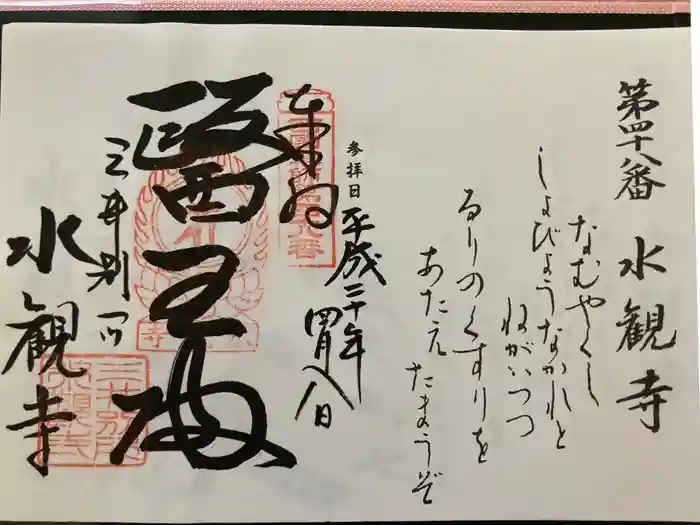 第四十八番 水観寺
なむやくし
しょびょうなかれと
ねがいつつ
るりのくすりを
あたえ たまうぞ
参拝日 平成三十年
四月八日
奉拝
醫王殿
三井別所
水観寺